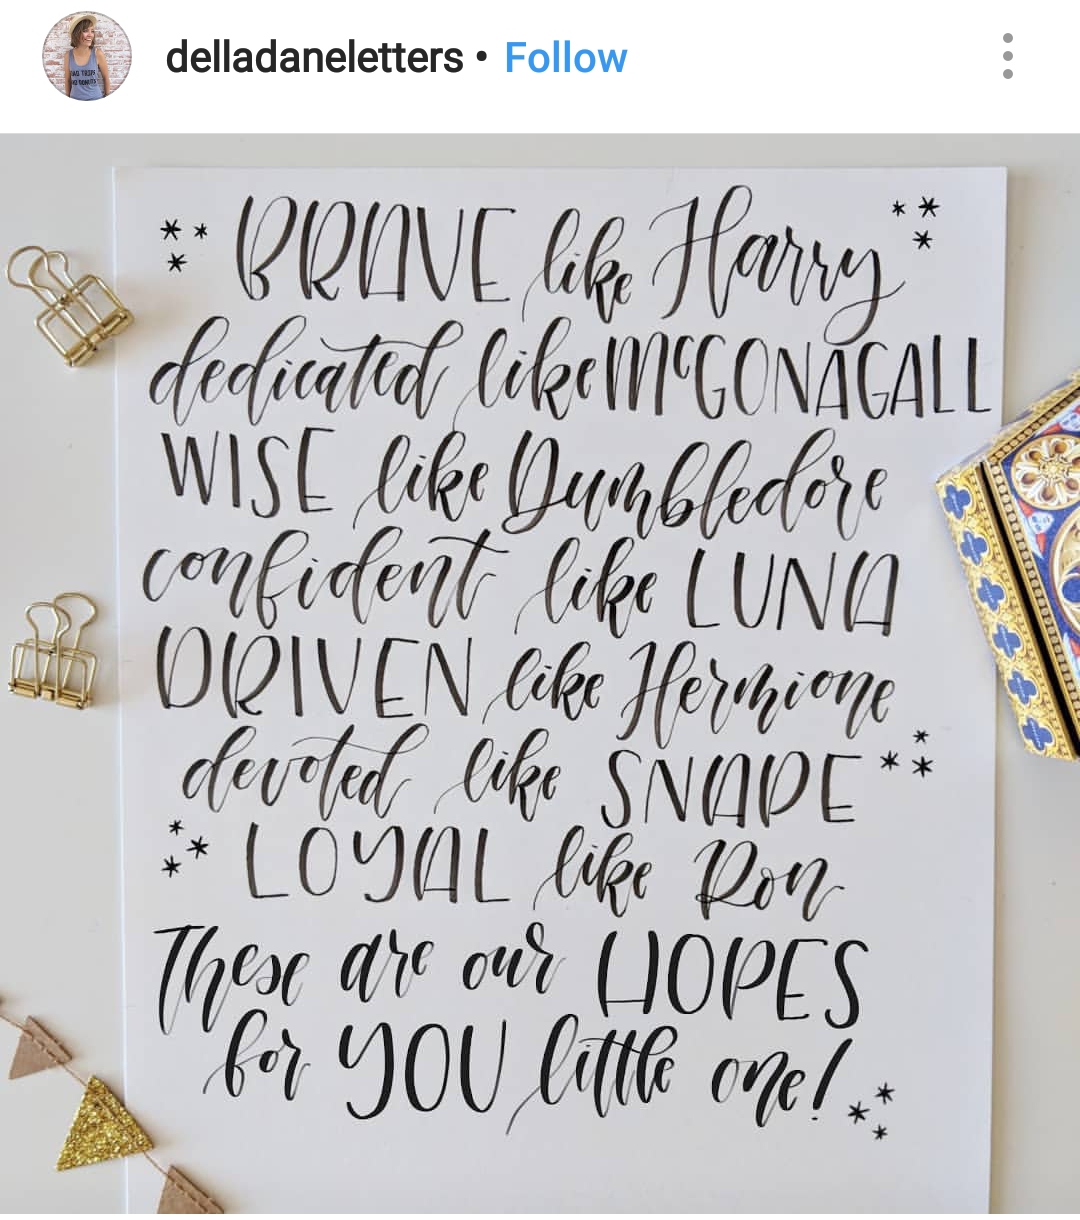 delladaneletters • Follow
BRAVE like Harry
dedicated like McGONAGALL
WISE like Dumbledore
confident like LUNA
DRIVEN like Hermione
devoted like SNAPE
LOYAL like Ron
These are our HOPES
for YOU little one!